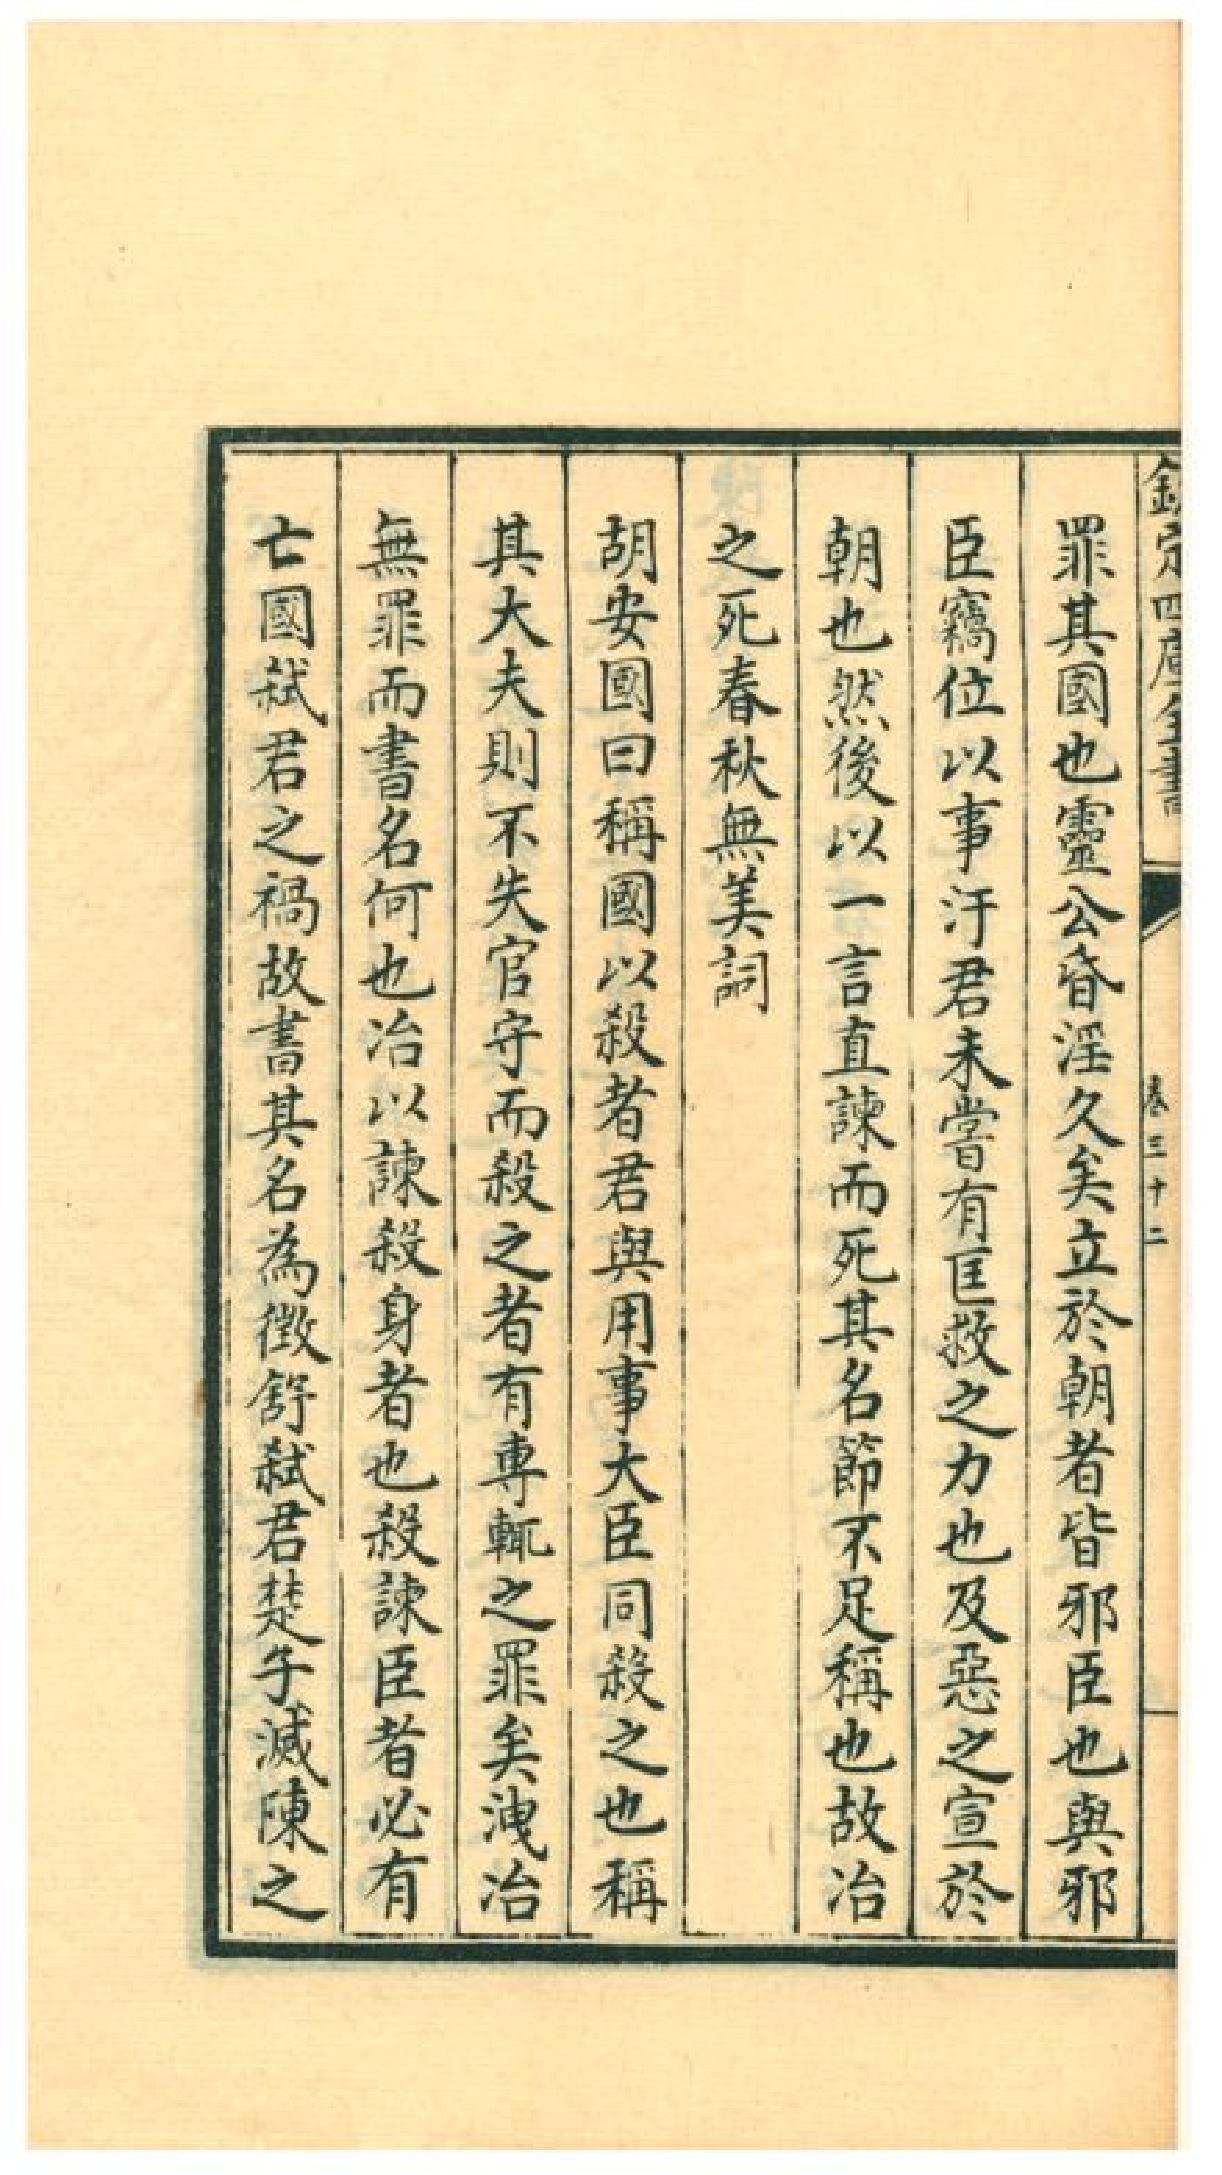 欽定四庫全書
卷三十二
罪其國也靈公昏淫久矣立於朝者皆邪臣也與邪
臣竊位以事汙君未嘗有匡救之力也及惡之宣於
朝也然後以一言直諫而死其名節不足稱也故冶
之死春秋無美詞
胡安國曰稱國以殺者君與用事大臣同殺之也稱
其大夫則不失官守而殺之者有專輒之罪矣洩冶
無罪而書名何也冶以諫殺身者也殺諫臣者必有
亡國弑君之禍故書其名為徴舒弑君楚子滅陳之